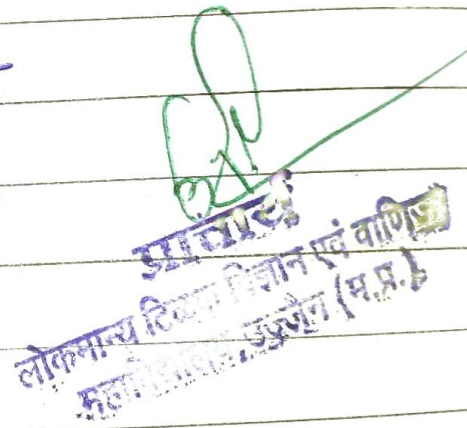 प्राचार्य
लोकमान्य टिळक विज्ञान एवं वाणिज्य
महाविद्यालय, उज्जैन (म.प्र.)